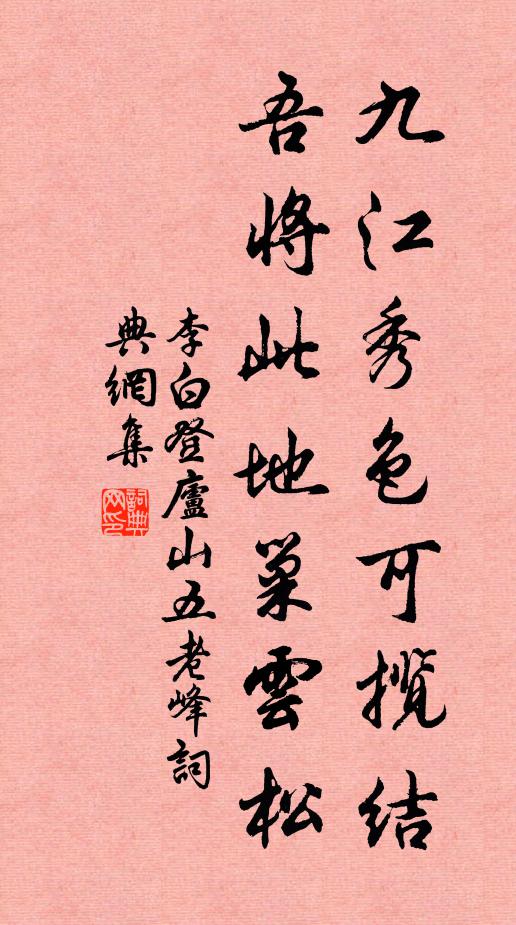 九江秀色可揽结
吾將此地巢雲松
李白登廬山五老峰詞
典網集
詞典
网印